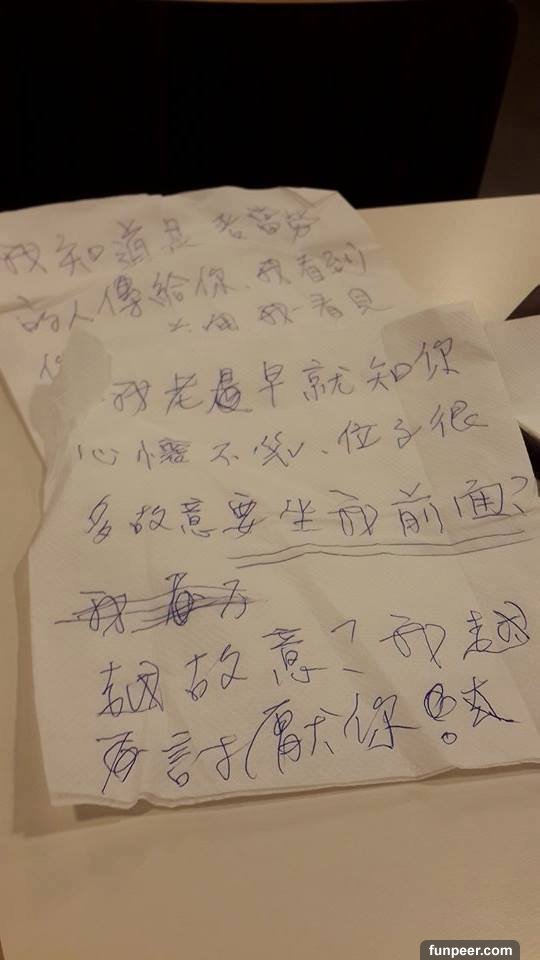 我知道是 老當勞
的人傳給你、我看到
我一看見
你
我老早就知你
心懷不
、位子很
多故意要坐我前面?
我
越故意?我越
討厭你!去
funpeer.com